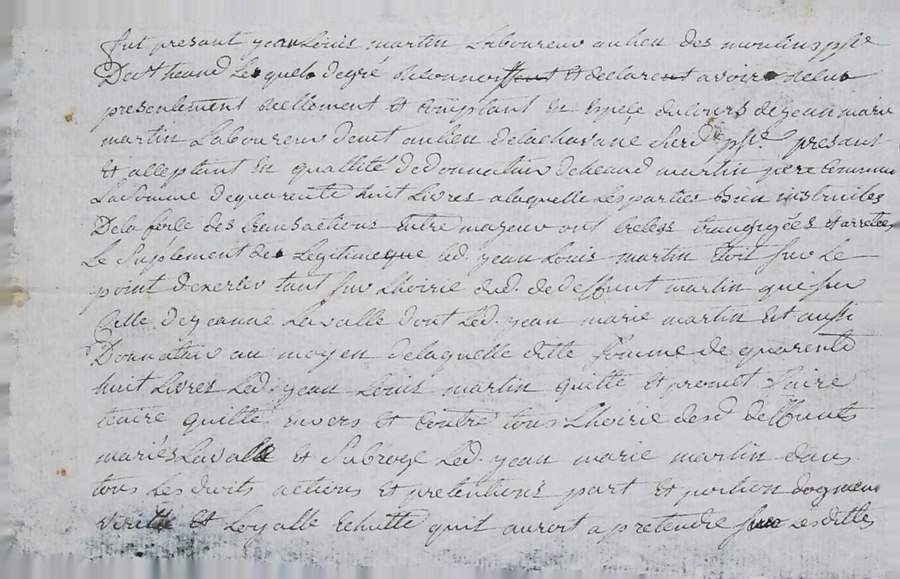 fut presant jean Louis martin Laboureur au lieu des moulins psse
lequel de gré reconnoissent et declarent avoir recu
presentement reellement et comptant en espece du cours de jean marie
martin Laboureur demt au lieu delachavane psse. presant
et acceptant en quallité de donnataire martin pere commun
La somme de quarente huit Livres a laquelle Les parties bien instruites
De la force des transactions entre majeur ont transigées et arretées
Le Suplement de Legitime que led. jean Louis martin etoit sur Le
point dexerser tant sur Lhoirie dud. deffunt martin que sur
Celle de jeanne Lavalle dont Led. jean marie martin est aussi
Donnataire au moyen de laquelle ditte somme de quarente
huit Livres Led. jean Louis martin quitte et promet faire
tenire quitte envers et contre tous Lhoirie desd deffunts
mariés Lavalle et Subroge Led. jean marie martin dans
tous Les droits actions et pretentions part et portion
virille et Loyalle Echutte quit auront a pretendre sur Lesdittes